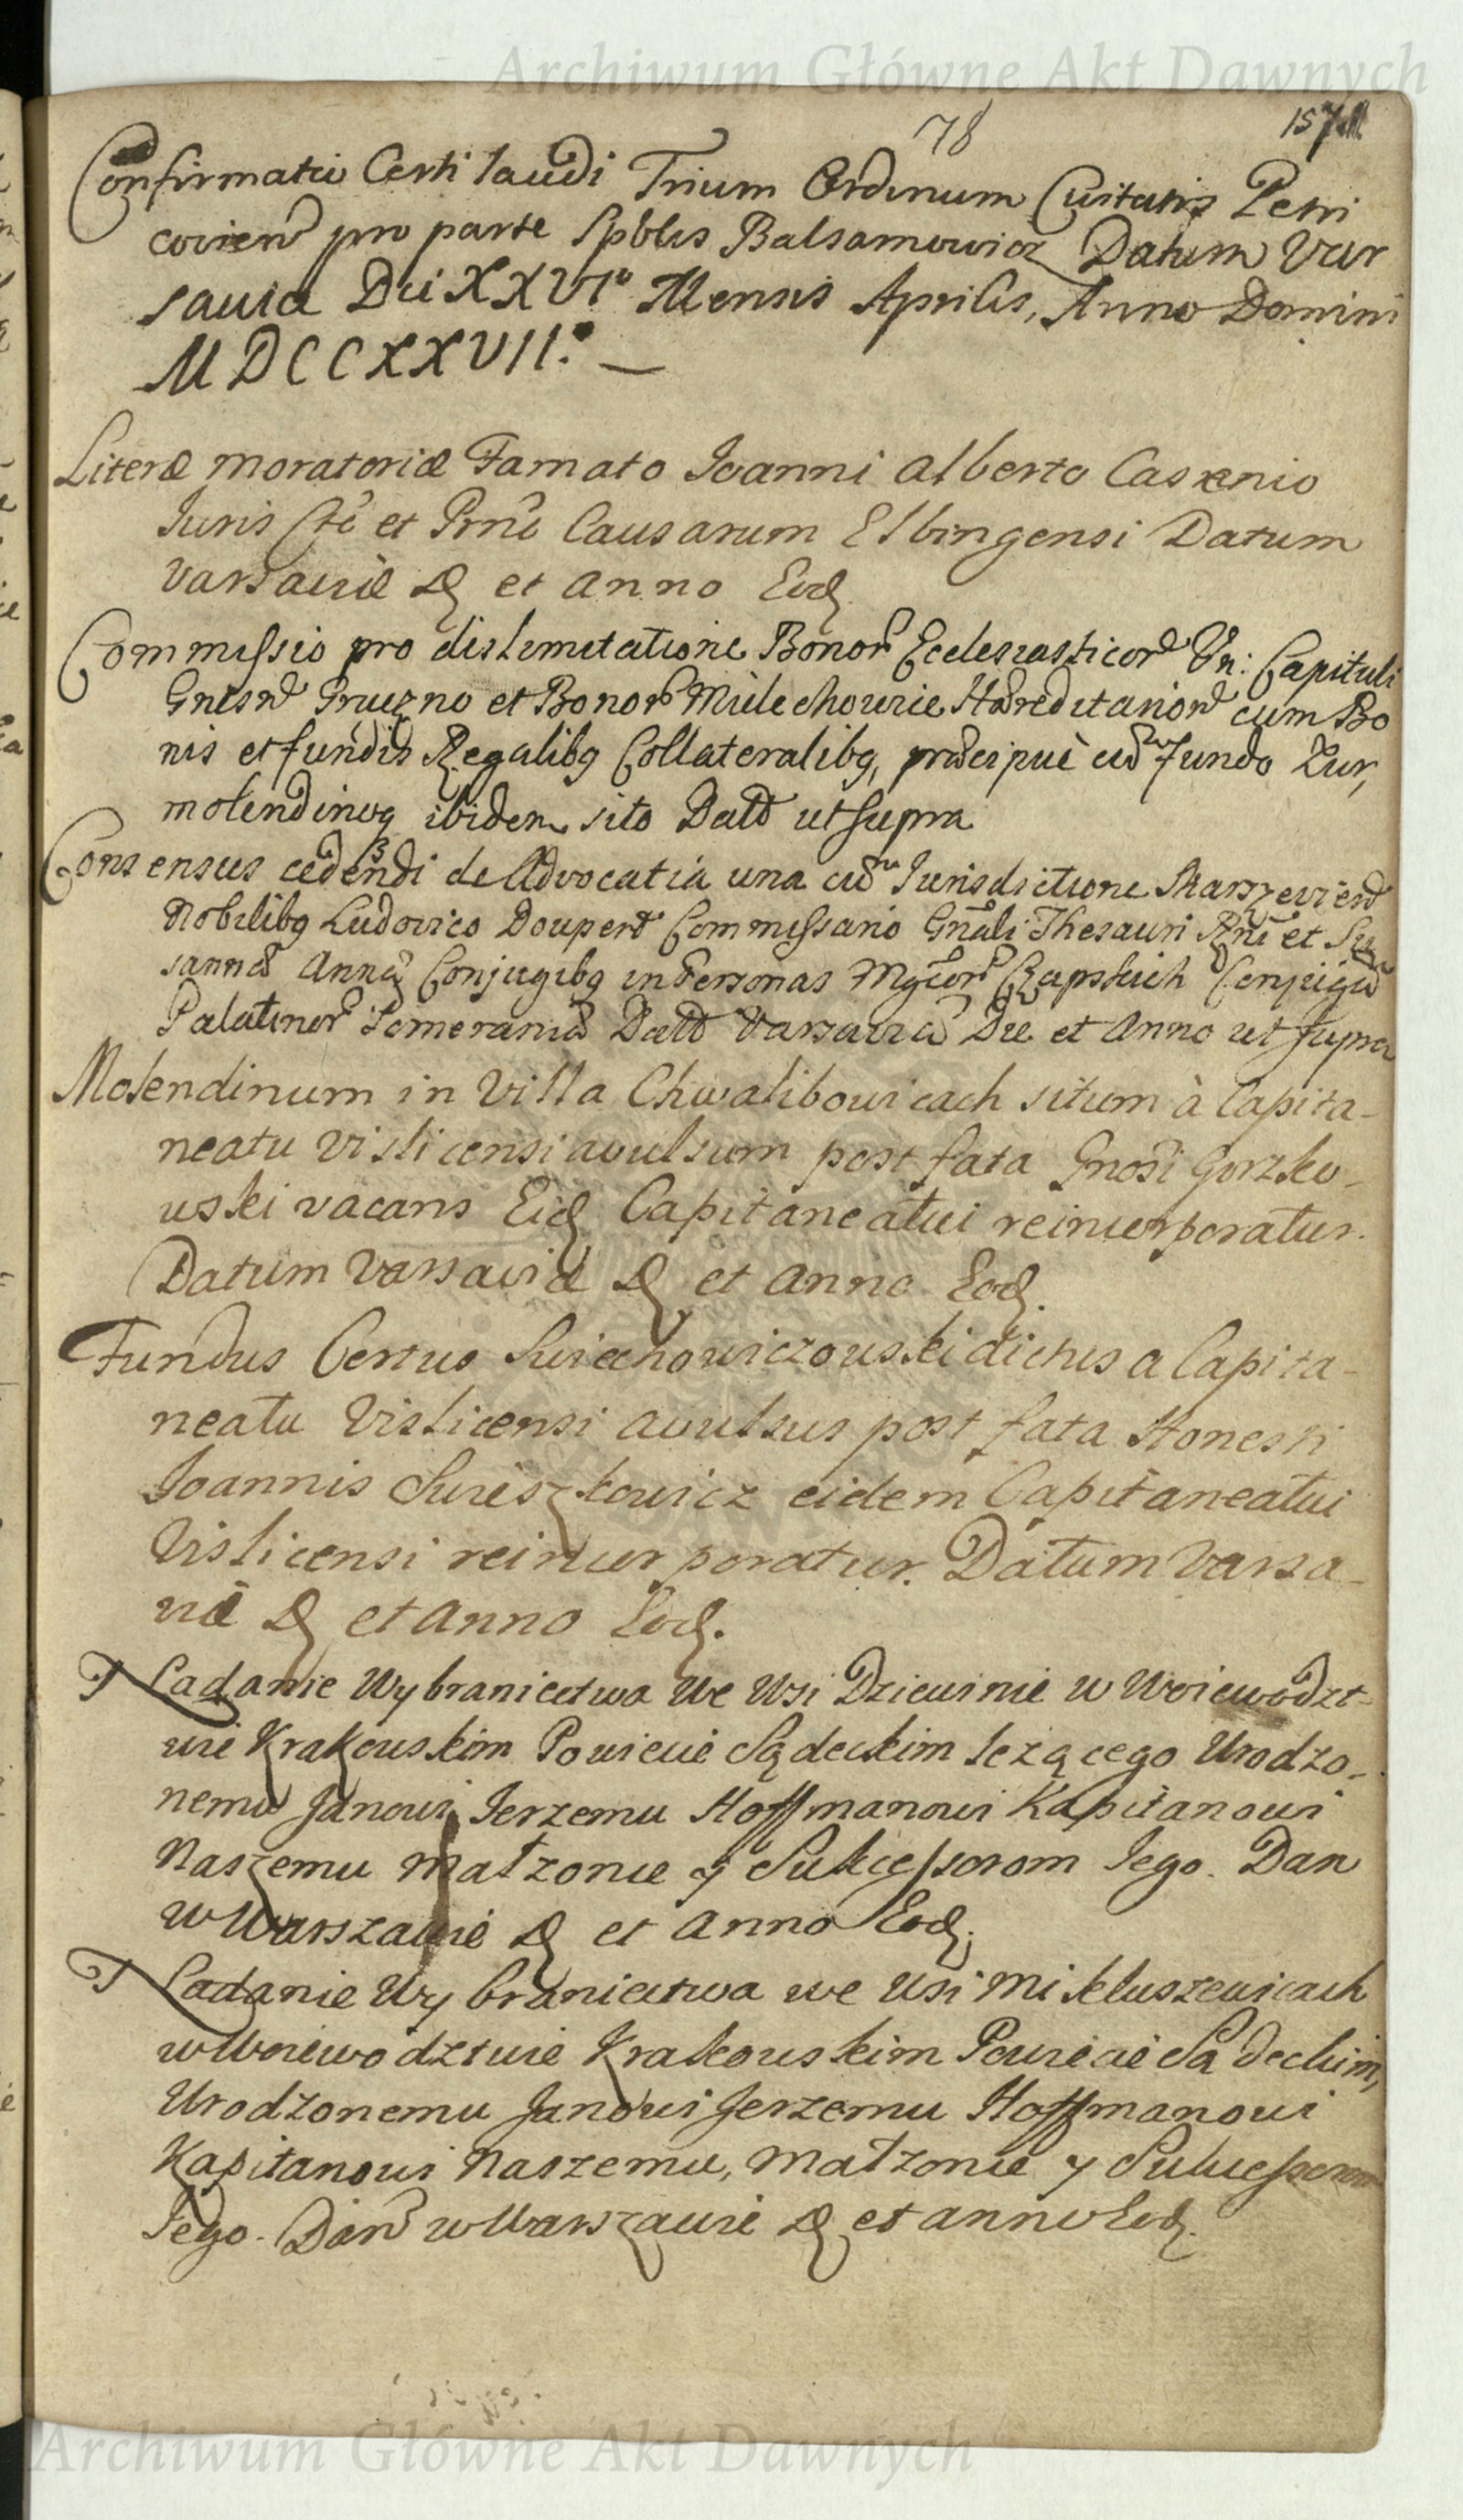 Archiwum Główne Akt Dawnych
78
157
Confirmatio Certi laudi Trium Ordinum Civitatis Petri
covien pro parte Spblis Balsamowicz Datum Var
saviæ Die XXVIᵃ Mensis Aprilis, Anno Domini
MDCCXXVII.° —
Literæ moratoriæ Famato Joanni Alberto Casenio
Juris Cti et Prnẽ Causarum Elbingensi Datum
Varsaviæ D et Anno Eod
Commissio pro dislimitatione Bonor Ecclesiasticor Vn: Capituli
Gnesn Gruczno et Bonor Mielechowie Hæreditarior cum Bo
nis et fundis Regalibq Collateralibq, præcipuè cũ fundo Zur,
molendinoq ibidem sito Datt ut supra
Consensus cedendi de Advocatia una cũ Jurisdictione Skarszevien
Nobilibq Ludovico Doupert Commissario Gnãli Thesauri Rni et Su
sannæ Annæ Conjugibq in Personas Mgcor Czapskich Conjugũ
Palatinor Pomeraniæ Datt Varsaviæ Die et Anno ut supra
Molendinum in Villa Chwalibowicach situm à Capita-
neatu Visticensi avulsum post fata Gnosi Gorzko-
wski vacans Eid Capitaneatui reincorporatur.
Datum Varsaviæ D et Anno Eod.
Fundus Certus Swiechowiczowski dictus a Capita-
neatu Visticensi avulsus post fata Honesti
Joannis Swieszkowicz eidem Capitaneatui
Visticensi reincorporatur. Datum Varsa-
viæ D et Anno Eod.
Ządanie Wybraniectwa We Wsi Dziewinie w Woiewodzt-
wie Krakowskim Powiecie Sądeckim leżącego Urodzo-
nemu Janowi Jerzemu Hoffmanowi Kapitanowi
Naszemu Małzonce y Sukcessorom Jego. Dan
w Warszawie D et Anno Eod.
Ządanie Wybraniectwa we Wsi Mikluszewicach
w Woiewodztwie Krakowskim Powiecie Sądeckim,
Urodzonemu Janowi Jerzemu Hoffmanowi
Kapitanowi Naszemu, Małzonce y Sukcessorom
Jego. Dan w Warszawie D et anno Eod.
Archiwum Główne Akt Dawnych